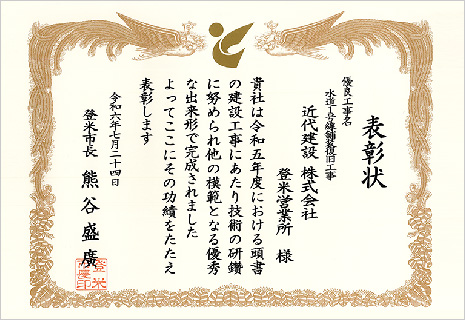 表彰状
優良工事名
近代建設 株式会社
登米営業所 様
貴社は令和五年度における頭書
の建設工事にあたり技術の研鑽
に努められ他の模範となる優秀
な出来形で完成されました
よってここにその功績をたたえ
表彰します
令和六年七月二十四日
登米市長 熊谷盛廣